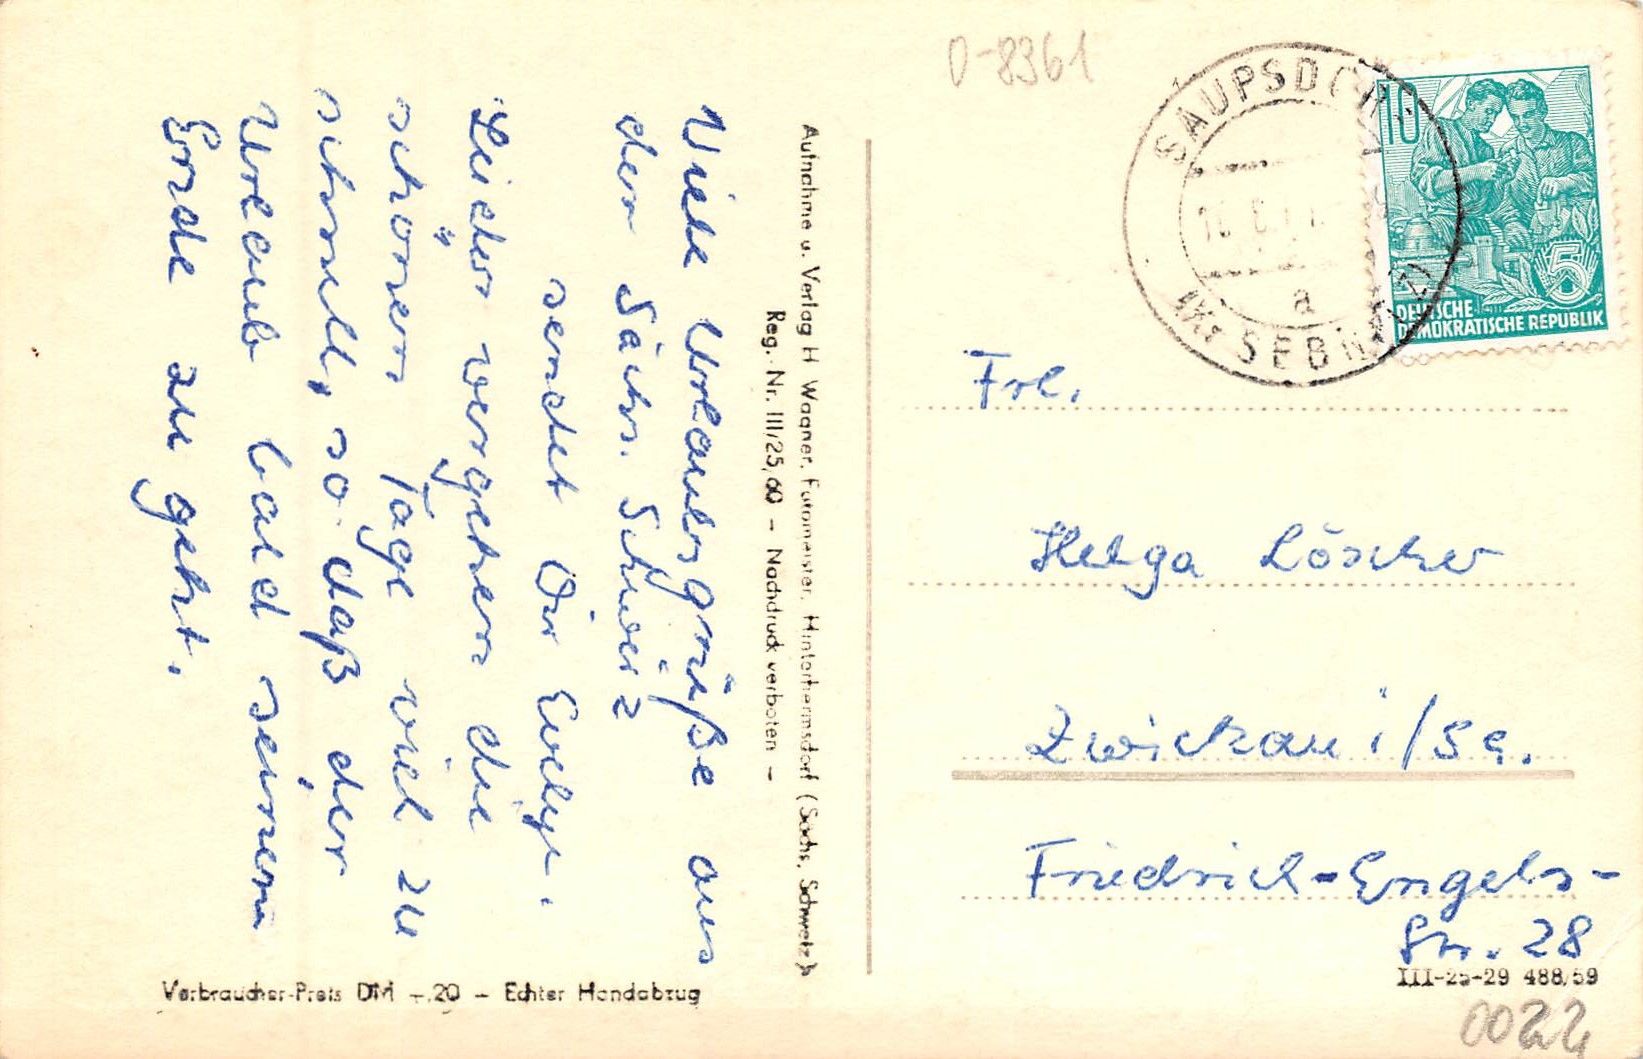 Viele Urlaubsgrüße aus
der Sächs. Schweiz
sendet Dir Evelyn.
Leider vergehen die
schönen Tage viel zu
schnell, so daß der
Urlaub bald seinem
Ende zu geht.
Aufnahme u. Verlag H Wagner, Fotomeister, Hinterhermsdorf (Sächs. Schweiz)
Reg.-Nr. III/25, 60 – Nachdruck verboten –
Verbraucher-Preis DM –.20 – Echter Handabzug
0-8361
SAUPSDORF
a
SEBNITZ
10
5
DEUTSCHE
DEMOKRATISCHE REPUBLIK
Frl.
Helga Löscher
Zwickau i/Sa.
Friedrich-Engels-
Str. 28
III-25-29 488/59
0022